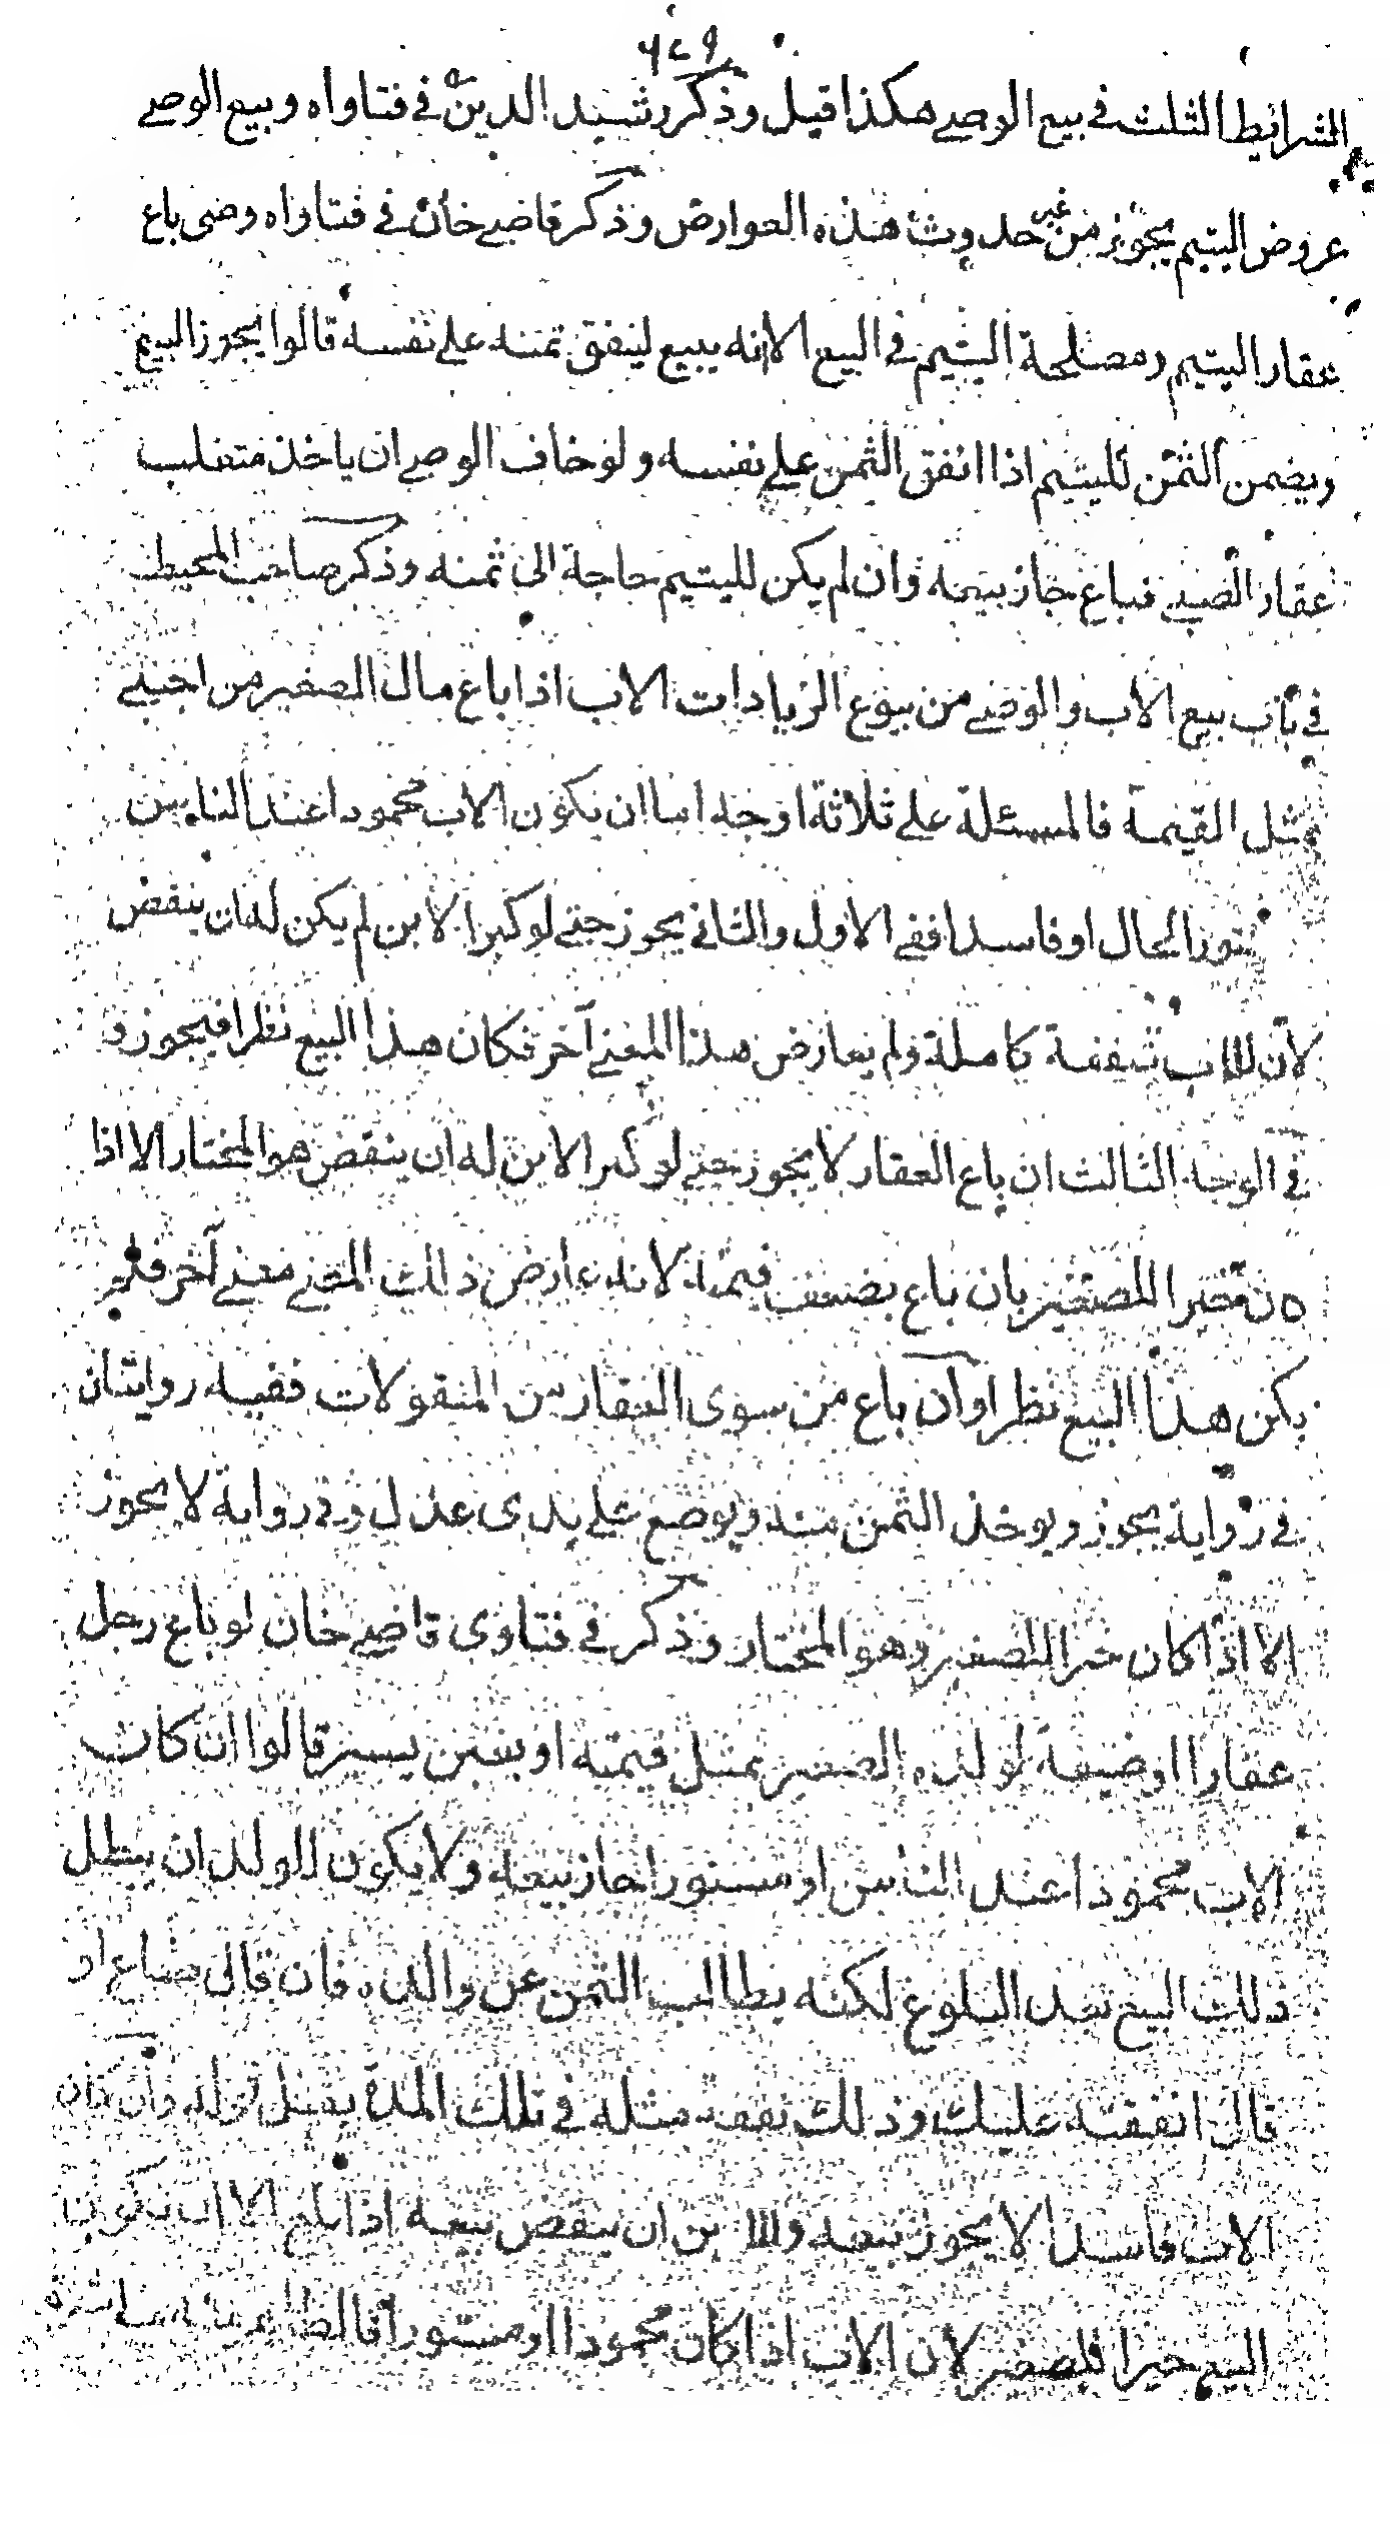 الشرائط الثلث في بيع الوصي هكذا قيل وذكر رشيد الدين في فتاواه وبيع الوصي
عروض اليتيم يجوز من غير حدوث هذه العوارض وذكر قاضي خان في فتاواه وصى باع
عقار اليتيم ومصلحة اليتيم في البيع الا انه يبيع لينفق ثمنه على نفسه قالوا يجوز البيع
ويضمن الثمن لليتيم اذا انفق الثمن على نفسه ولو خاف الوصي ان ياخذ متغلب
عقار الصبي فباع جاز بيعه وان لم يكن لليتيم حاجة الى ثمنه وذكر صاحب المحيط
في باب بيع الاب والوصي من بيوع الزيادات الاب اذا باع مال الصغير من اجنبي
بمثل القيمة فالمسئلة على ثلاثة اوجه اما ان يكون الاب محمودا عند الناس
مستور الحال او فاسدا ففي الاول والثاني يجوز حتى لو كبر الابن لم يكن له ان ينقض
لان للاب شفقة كاملة ولم يعارض هذا المعنى آخر فكان هذا البيع نظرا فيجوز و
في الوجه الثالث ان باع العقار لا يجوز حتى لو كبر الابن له ان ينقض هو المختار الا اذا
خيرا للصغير بان باع بضعف قيمته لانه عارض ذلك المعنى معنى آخر فلم
يكن هذا البيع نظرا وان باع من سوى العقار من المنقولات ففيه روايتان
في رواية يجوز ويوخذ الثمن منه ويوضع على يدى عدل وفي رواية لا يجوز
الا اذا كان خيرا للصغير وهو المختار وذكر في فتاوى قاضي خان لو باع رجل
عقارا او ضيعة لولده الصغير بمثل قيمته او بغبن يسير قالوا ان كان
الاب محمودا عند الناس او مستورا جاز بيعه ولا يكون للولد ان يبطل
ذلك البيع بعد البلوغ لكنه يطالب الثمن عن والده فان قال ضاع او
قال انفقته عليك وذلك نفقة مثله في تلك المدة يقبل قوله وان كان
الاب فاسدا لا يجوز بيعه وللابن ان ينقض بيعه اذا بلغ الا ان يكون
البيع خيرا للصغير لان الاب اذا كان محمودا او مستورا فالظاهر